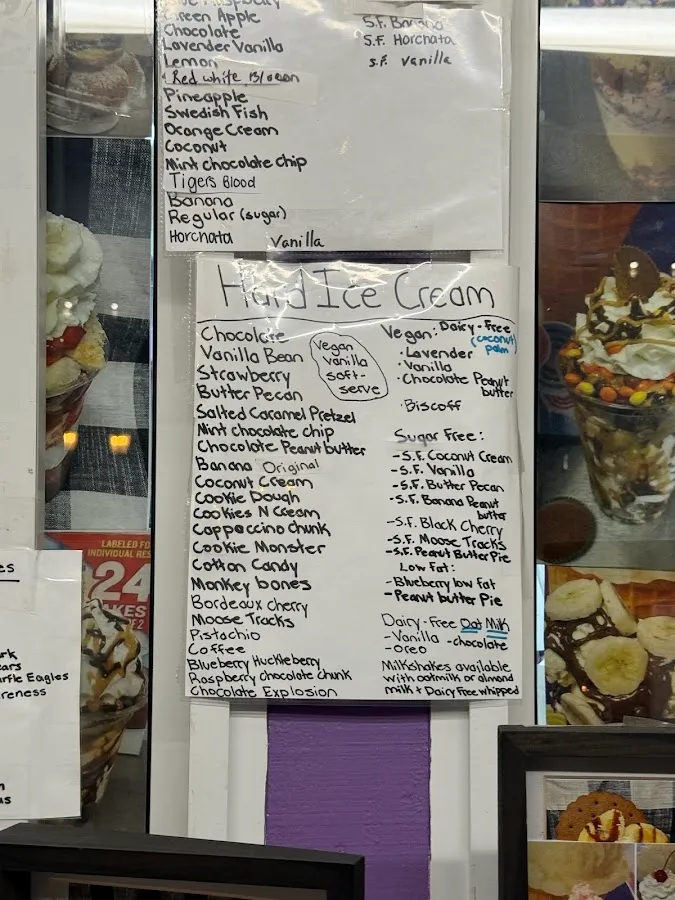 Blue Raspberry
Green Apple
Chocolate
Lavender Vanilla
Lemon
Red white
Pineapple
Swedish Fish
Orange Cream
Coconut
Mint chocolate chip
Tigers Blood
Banana
Regular (sugar)
Horchata
Vanilla
S.F. Banana
S.F. Horchata
S.F. Vanilla
Hard Ice Cream
Chocolate
Vanilla Bean
Strawberry
Butter Pecan
Salted Caramel Pretzel
Mint chocolate chip
Chocolate Peanut butter
Banana Original
Coconut Cream
Cookie Dough
Cookies N Cream
Cappoccino chunk
Cookie Monster
Cotton Candy
Monkey bones
Bordeaux cherry
Moose Tracks
Pistachio
Coffee
Blueberry Huckleberry
Raspberry chocolate chunk
Chocolate Explosion
Vegan
Vanilla
soft-
serve
Vegan: Dairy-Free
(coconut
palm
· Lavender
· Vanilla
· Chocolate Peanut
butter
· Biscoff
Sugar Free:
-S.F. Coconut Cream
-S.F. Vanilla
-S.F. Butter Pecan
-S.F. Banana Peanut
butter
-S.F. Black Cherry
-S.F. Moose Tracks
-S.F. Peanut Butter Pie
Low Fat:
-Blueberry low fat
-Peanut butter Pie
Dairy-Free Oat Milk
-Vanilla -chocolate
-oreo
Milkshakes available
with oatmilk or almond
milk + Dairy Free whipped
LABELED FO
INDIVIDUAL RES
$24
AKES
OF 2
es
rk
ears
urfle Eagles
areness
n
us